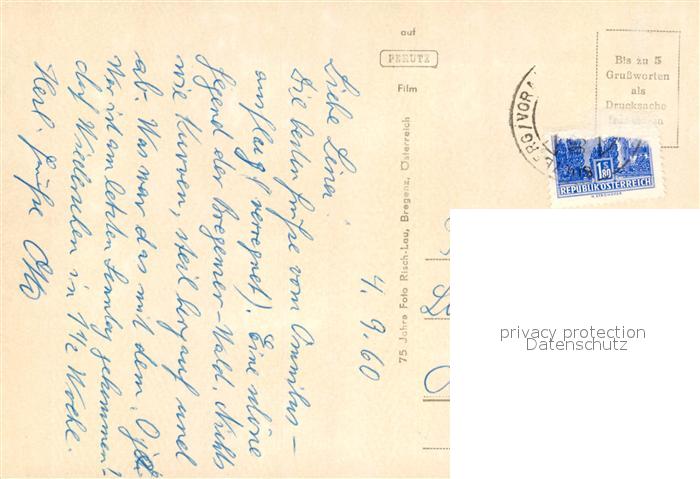 4.9.60
Liebe Lina!
Die besten Grüße vom Omnibus-
ausflug (verregnet). Eine schöne
Gegend der Bregenzer-Wald. Nichts
wie Kurven, steil bergauf und
ab. Was war das mit dem
Wer ist am letzten Sonntag gekommen?
Auf Wiedersehen in 1 1/2 Woche.
Herzl. Grüße Otto
75 Jahre Foto Risch-Lau, Bregenz, Österreich
auf
PERUTZ
Film
Bis zu 5
Grußworten
als
Drucksache
1 S 80
REPUBLIK ÖSTERREICH
privacy protection
Datenschutz